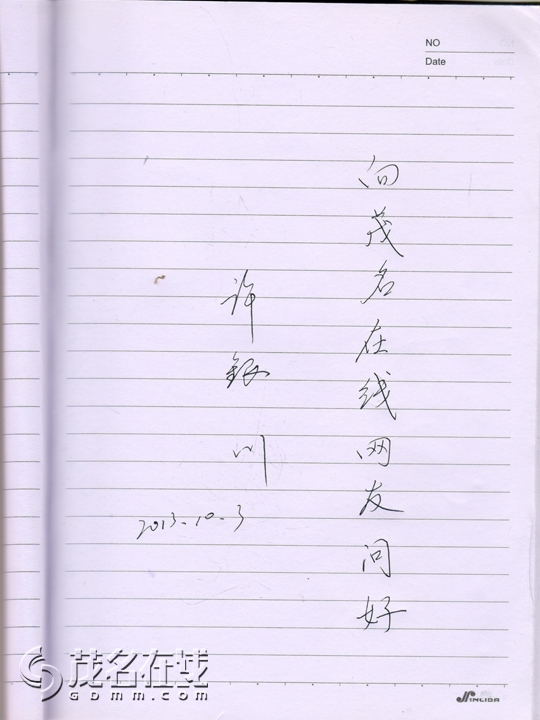 NO
Date
向茂名在线网友问好
许银川
2013.10.3
茂名在线
GDMM.com
JINLIDA